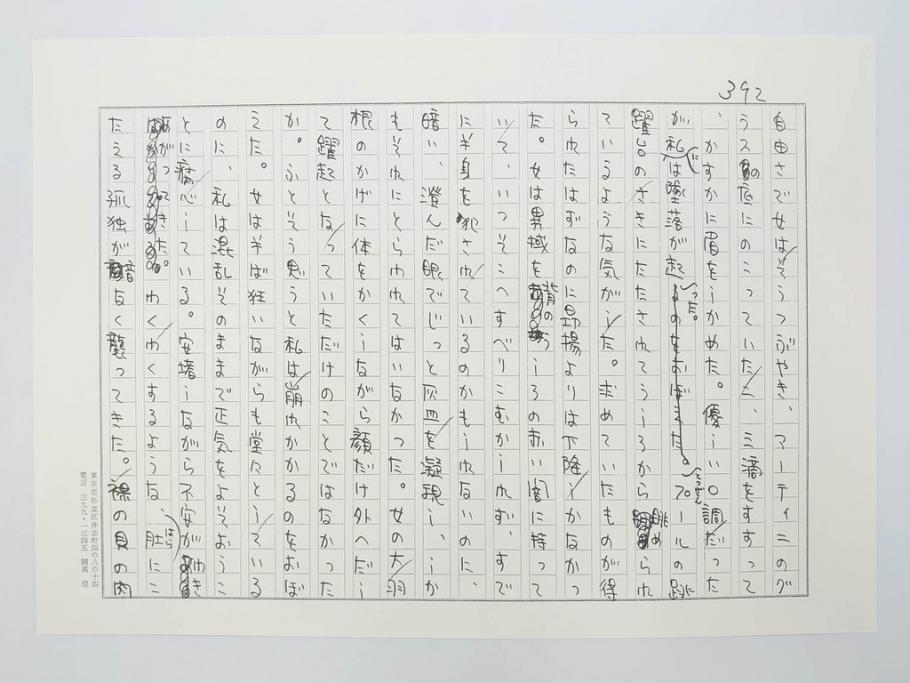 392
自由さで女はそうつぶやき、マーティニのグ
ラスの底にのこっていた二、三滴をすすって
、かすかに眉をしかめた。優しい口調だった
が、私には墜落が起った。とつぜんプールの跳
躍台のさきにたたされてうしろから眺められ
ているような気がした。求めていたものが得
られたはずなのに昂揚よりは下降しかなかっ
た。女は異域を背のうしろの赤い闇に持って
いて、いつそこへすべりこむかしれず、すで
に半身を犯されているのかもしれないのに、
暗い、澄んだ眼でじっと灰皿を凝視し、しか
もそれにとらわれてはいなかった。女の大羽
根のかげに体をかくしながら顔だけ外へだし
て躍起となっていただけのことではなかった
か。ふとそう思うと私は崩れかかるのをおぼ
えた。女は半ば狂いながらも堂々としている
のに、私は混乱そのままで正気をよそおうこ
とに腐心している。安堵しながら不安がわき
あがってきた。わくわくするような、肚にこ
たえる孤独が音もなく襲ってきた。裸の貝の肉
東京都杉並区井草町四の八の十四
電話 三九九・一三四五 開高 健